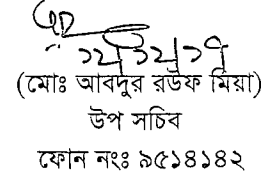 (মোঃ আবদুর রউফ মিয়া)
উপ সচিব
ফোন নংঃ ৯৫১৪১৪২